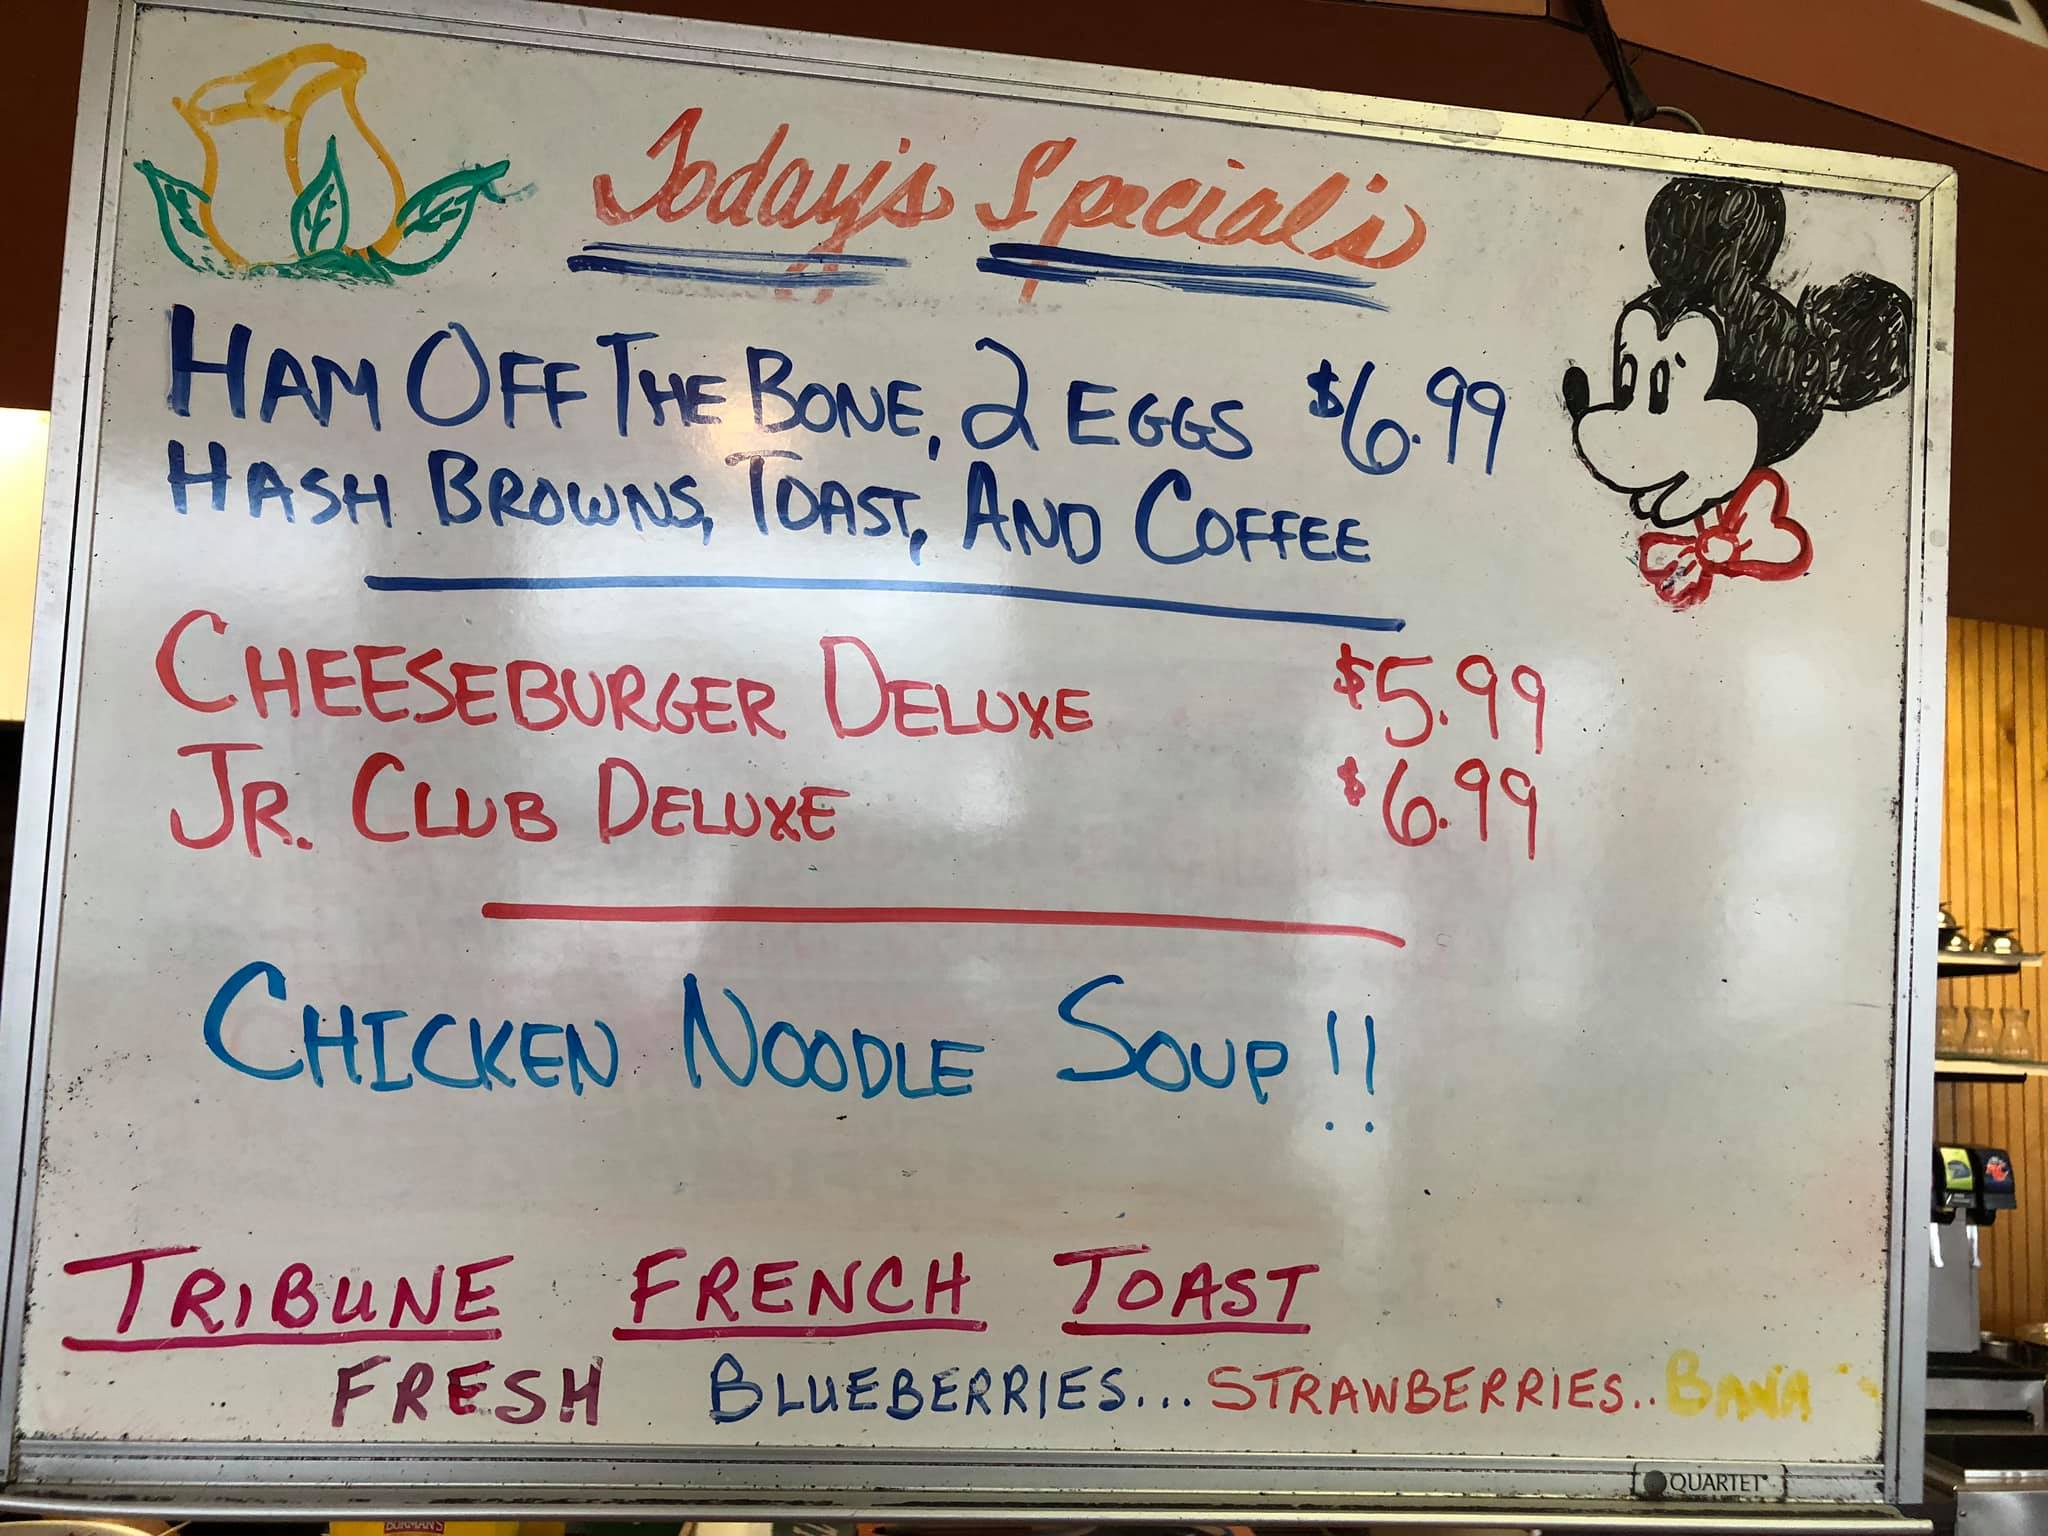 Today's Special's
HAM OFF THE BONE, 2 EGGS $6.99
HASH BROWNS, TOAST, AND COFFEE
CHEESEBURGER DELUXE $5.99
JR. CLUB DELUXE $6.99
CHICKEN NOODLE SOUP!!
TRIBUNE FRENCH TOAST
FRESH BLUEBERRIES... STRAWBERRIES..
QUARTET